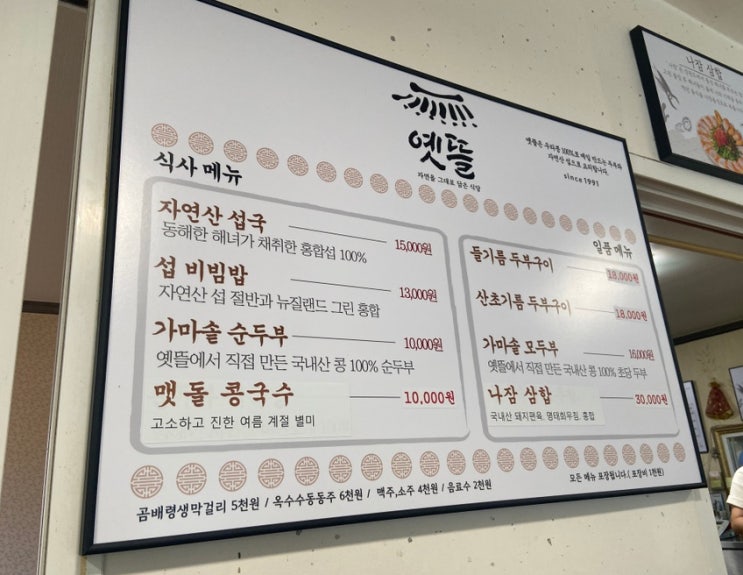 옛뜰
자연을 그대로 담은 식당
옛뜰은 우리콩 100%로 매일 만드는 두부와
자연산 섭으로 요리합니다.
since 1991
식사 메뉴
자연산 섭국 15,000원
동해안 해녀가 채취한 홍합섭 100%
섭 비빔밥 13,000원
자연산 섭 절반과 뉴질랜드 그린 홍합
가마솔 순두부 10,000원
옛뜰에서 직접 만든 국내산 콩 100% 순두부
맷돌 콩국수 10,000원
고소하고 진한 여름 계절 별미
일품 메뉴
들기름 두부구이 18,000원
산초기름 두부구이 18,000원
가마솔 모두부 16,000원
옛뜰에서 직접 만든 국내산 콩 100% 초당 두부
나잠 삼합 30,000원
국내산 돼지편육, 명태회무침, 홍합
곰배령생막걸리 5천원 / 옥수수동동주 6천원 / 맥주,소주 4천원 / 음료수 2천원
모든 메뉴 포장됩니다.( 포장비 1천원)
나잠 삼합